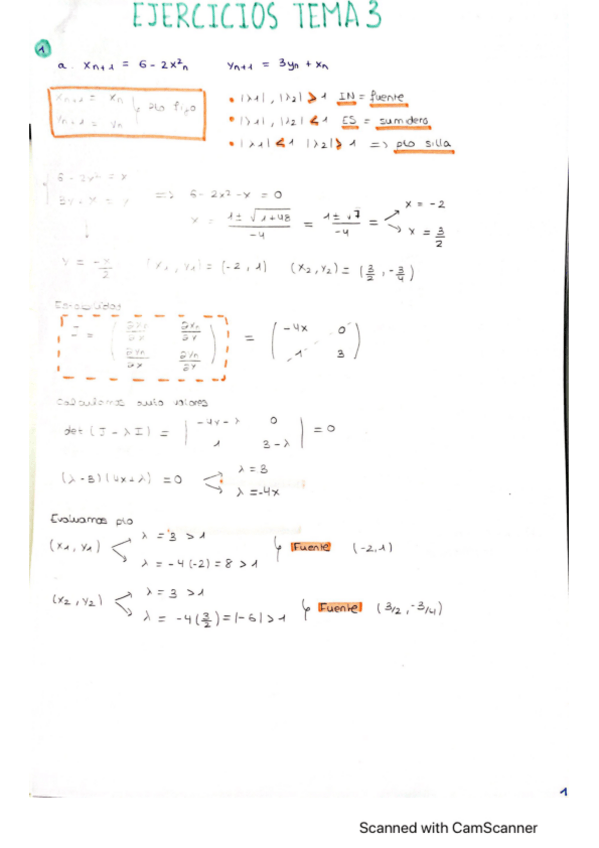 EJERCICIOS TEMA 3
1
a. xn+1 = 6 - 2x²n yn+1 = 3yn + xn
xn+1 = xn
yn+1 = yn
pto fijo
• |λ1|, |λ2| > 1 IN = fuente
• |λ1|, |λ2| < 1 ES = sumidero
• |λ1| < 1 |λ2| > 1 => pto silla
6 - 2x² = x
3y + x = y
=> 6 - 2x² - x = 0
x = 1 ± √1+48 / -4 = 1 ± √7 / -4 =
x = -2
x = 3/2
y = -x/2 (x1, y1) = (-2, 1) (x2, y2) = (3/2, -3/4)
Estabilidad
J = ( ∂xn/∂x ∂xn/∂y
∂yn/∂x ∂yn/∂y )
= ( -4x 0
1 3 )
Calculamos auto valores
det (J - λI) = | -4x - λ 0
1 3 - λ | = 0
(λ - 3)(4x + λ) = 0
λ = 3
λ = -4x
Evaluamos pto
(x1, y1)
λ = 3 > 1
λ = -4(-2) = 8 > 1
Fuente (-2, 1)
(x2, y2)
λ = 3 > 1
λ = -4(3/2) = |-6| > 1
Fuente (3/2, -3/4)
1
Scanned with CamScanner